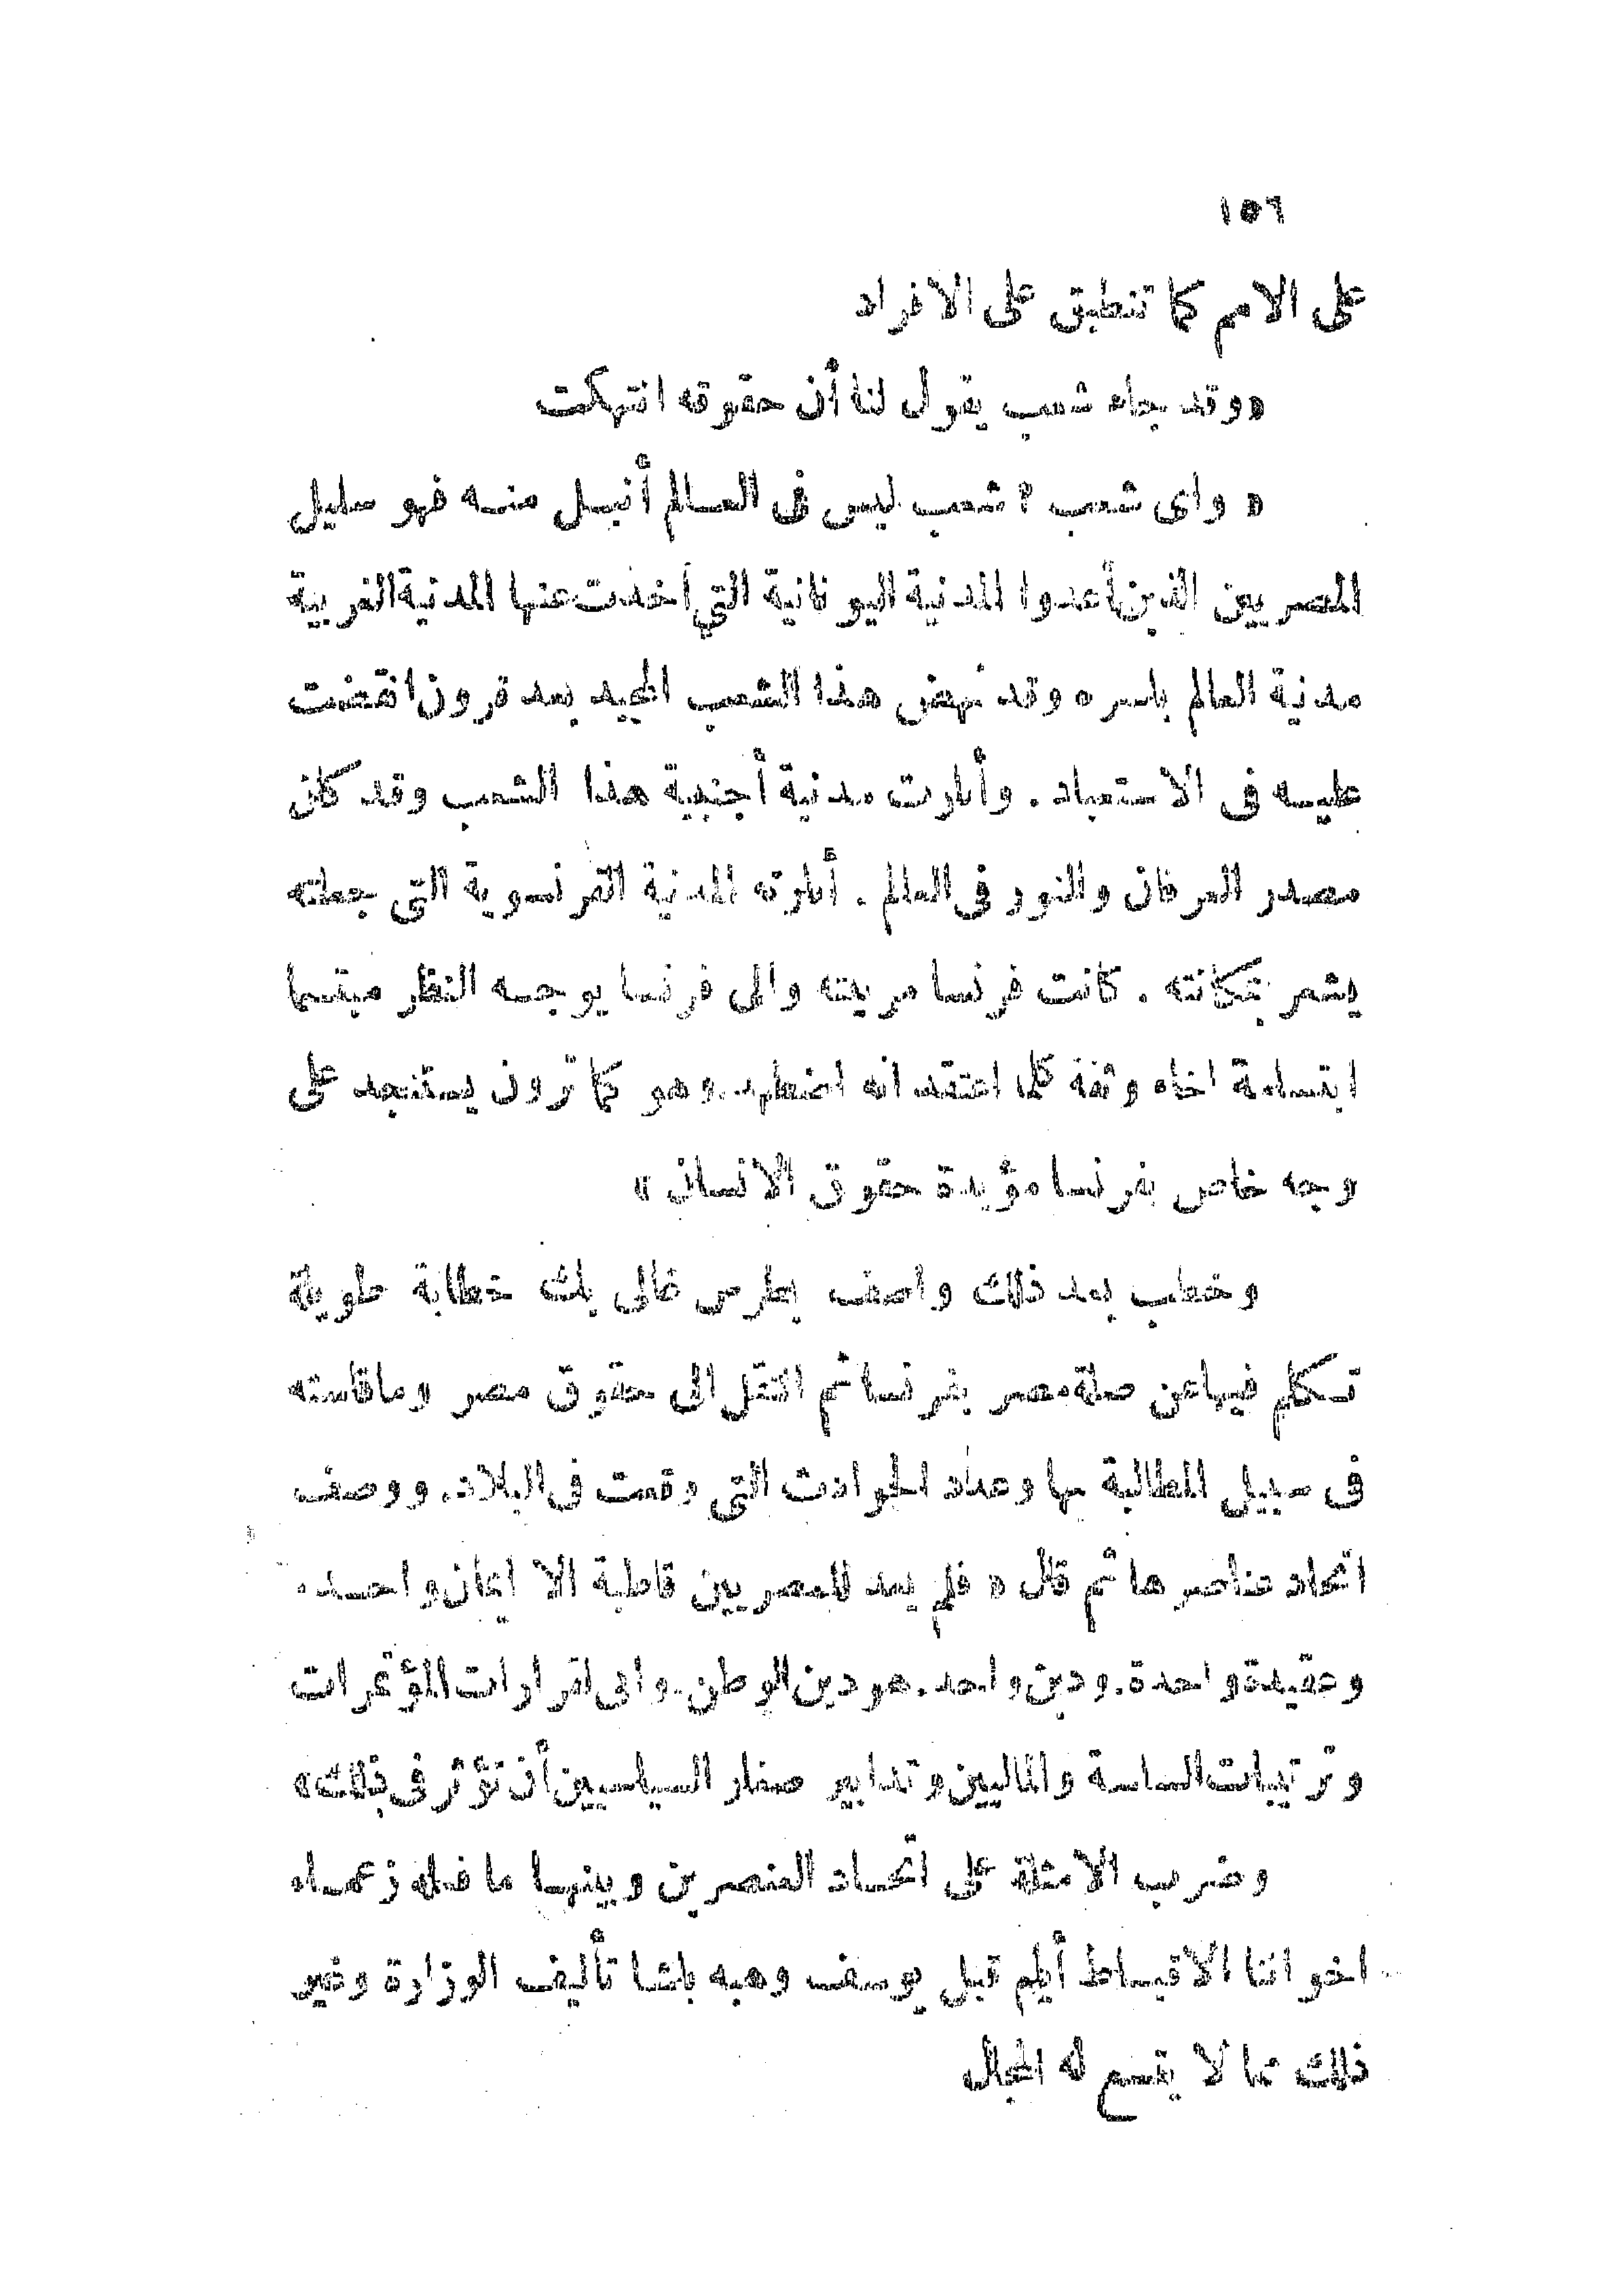 ١٥٦
على الامم كما تنطبق على الافراد
«وقد جاء شعب يقول لنا أن حقوقه انتهكت
« واى شعب ؟ شعب ليس فى العالم أنبل منه فهو سليل
المصريين الذين أعدوا المدنية اليونانية التي أخذت عنها المدنية الغربية
مدنية العالم باسره وقد نهض هذا الشعب المجيد بعد قرون انقضت
عليه فى الاستعباد . وأنارت مدنية أجنبية هذا الشعب وقد كان
مصدر العرفان والنور فى العالم . أنارته المدنية الفرنسوية التى جعلته
يشعر بمكانته . كانت فرنسا مربيته والى فرنسا يوجه النظر مبتسما
ابتسامة اخاء وثقة كلما اعتقد انه اضطهد . وهو كما ترون يستنجد على
وجه خاص بفرنسا مؤيدة حقوق الانسان »
وخطب بعد ذلك واصف بطرس غالى بك خطابة طويلة
تكلم فيها عن صلة مصر بفرنسا ثم انتقل الى حقوق مصر وما قاسته
فى سبيل المطالبة بها وعداد الحوادث التى وقعت فى البلاد. ووصف
اتحاد عناصرها ثم قال « فلم يعد للمصريين قاطبة الا إيمان واحد .
وعقيدة واحدة. ودين واحد. هو دين الوطن. وانى لقرارات المؤتمرات
وترتيبات الساسة والماليين وتدابير صغار السياسيين أن تؤثر فى ذلك »
وضرب الامثلة على اتحاد العنصرين وبينها ما فعله زعماء
اخواننا الاقباط أيام قبل يوسف وهبه باشا تأليف الوزارة وغير
ذلك مما لا يتسع له المجال